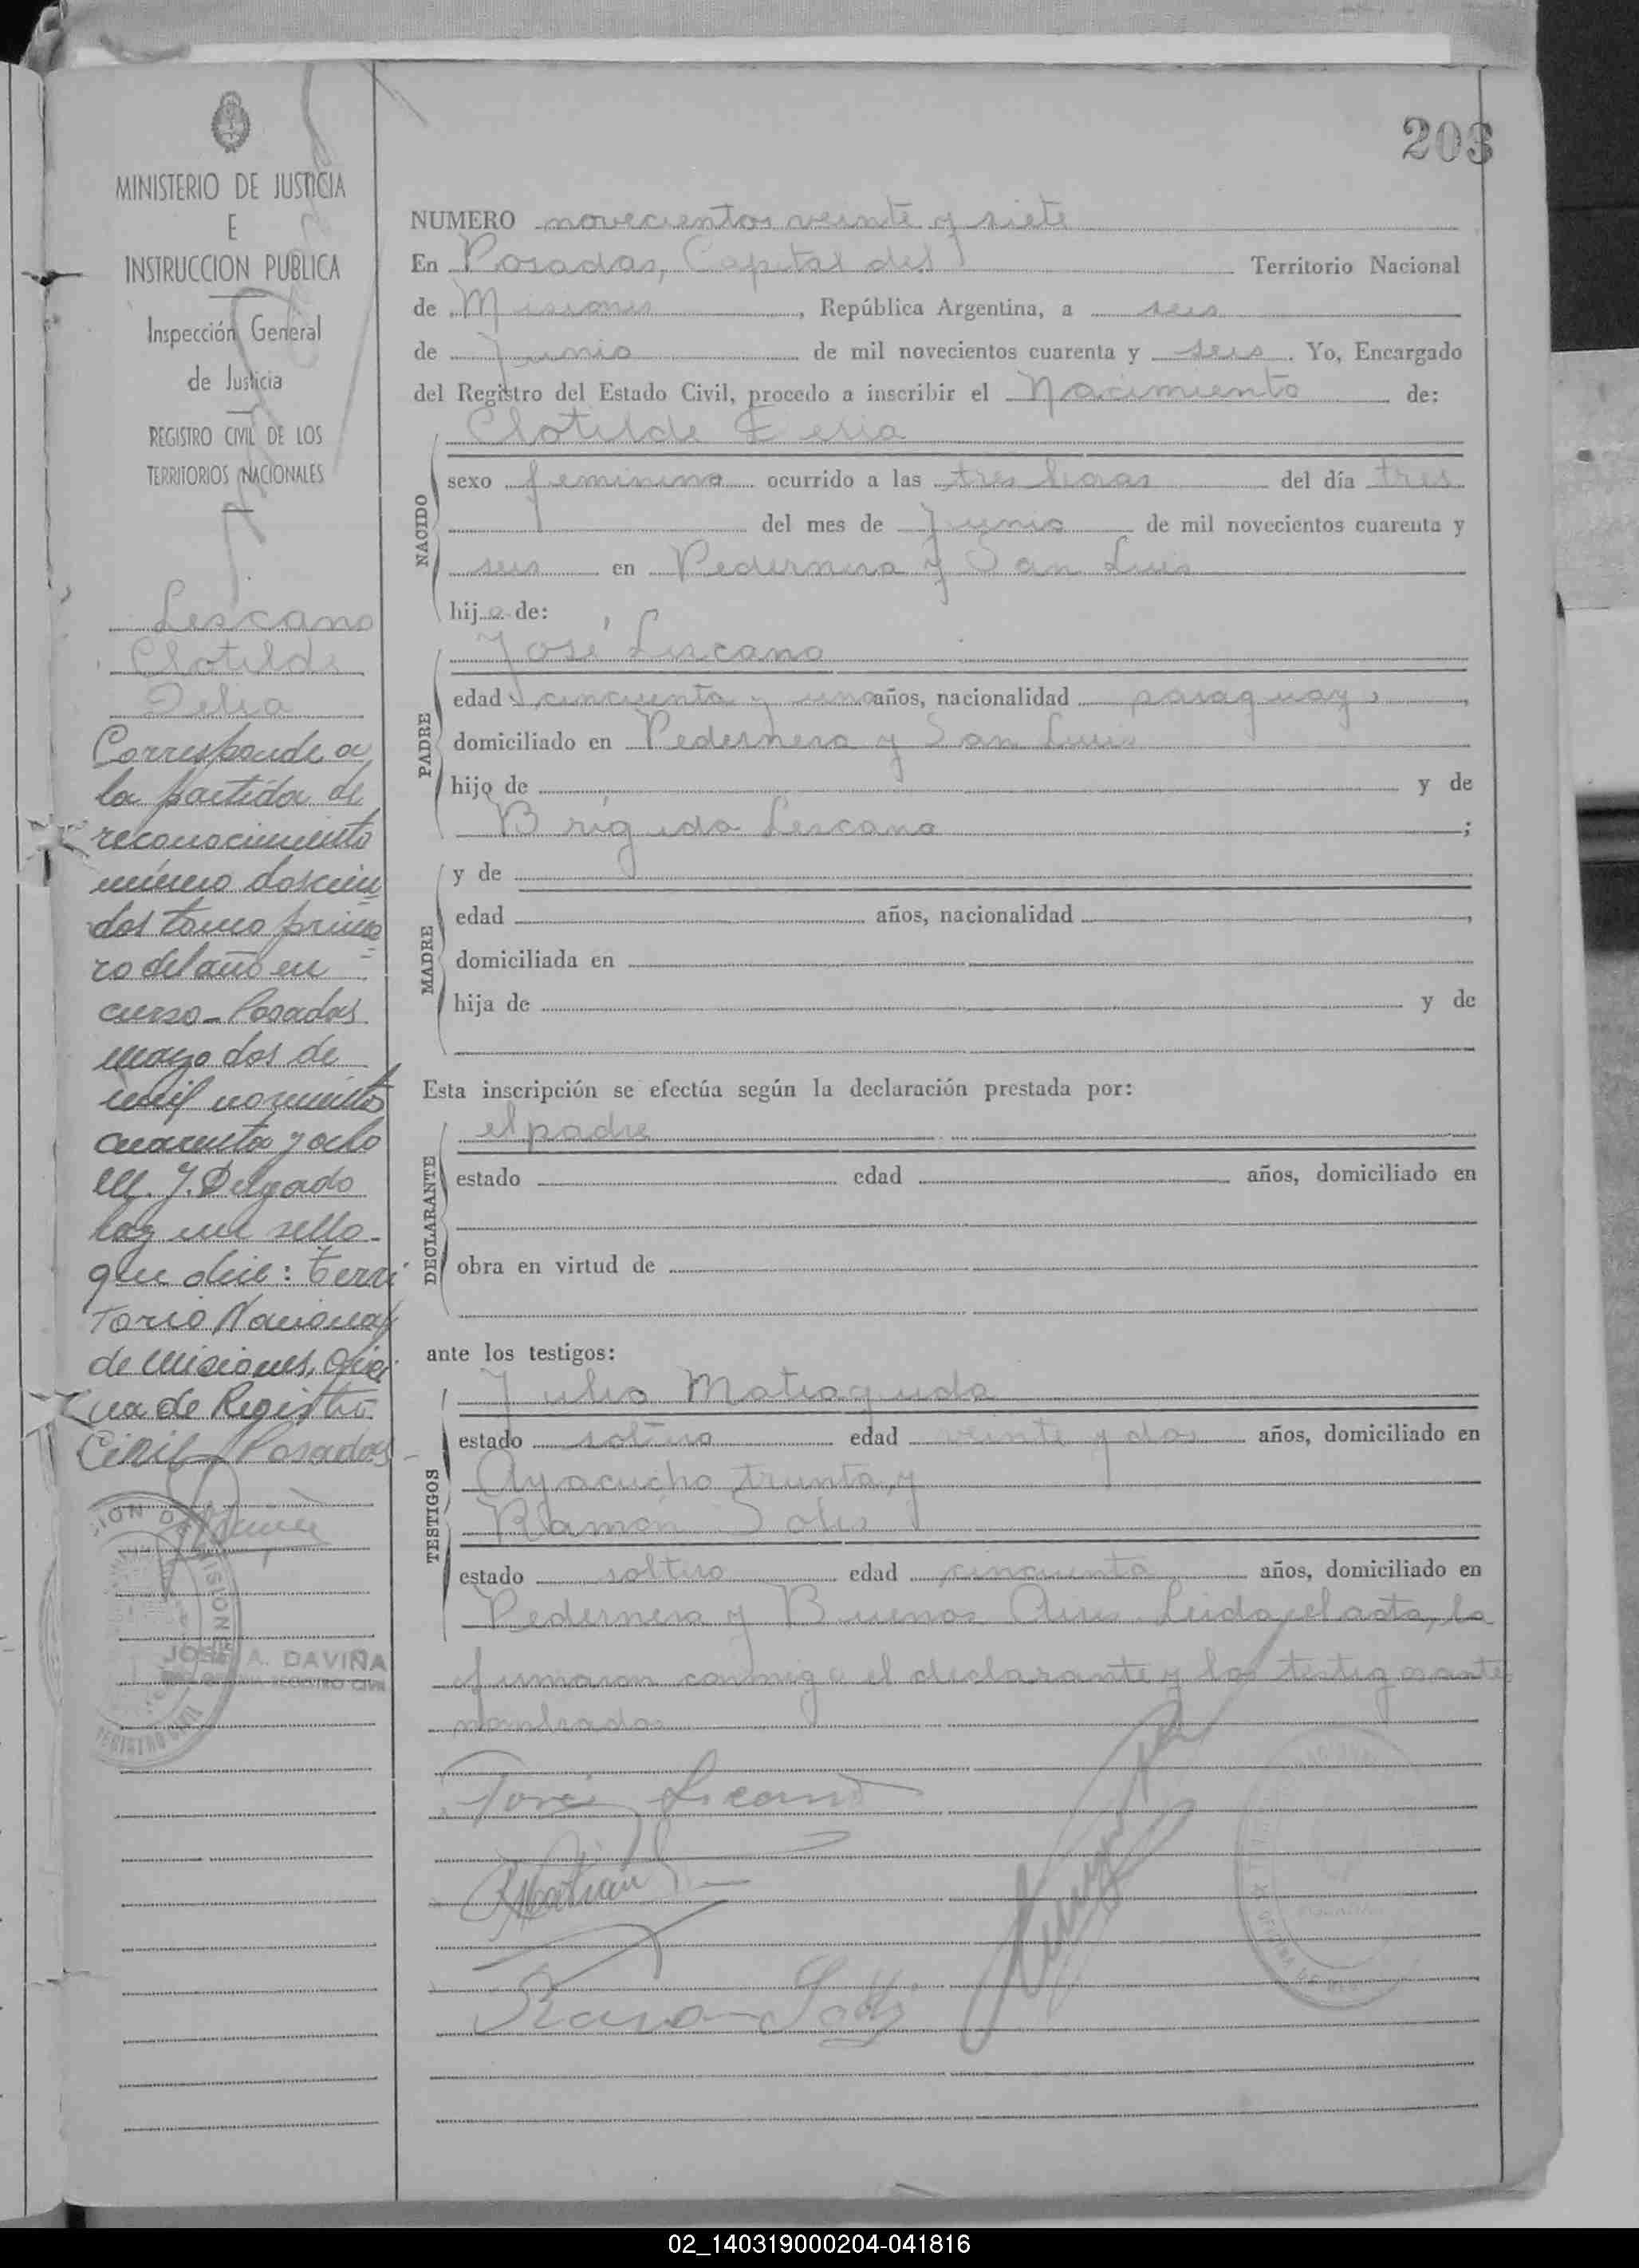 203
MINISTERIO DE JUSTICIA
E
INSTRUCCION PUBLICA
Inspección General
de Justicia
REGISTRO CIVIL DE LOS
TERRITORIOS NACIONALES
Lescano
Clotilde
Delia
Corresponde a
la partida de
reconocimiento
número doscien
dos tomo prime
ro del año en
curso - Posadas
mayo dos de
mil novecientos
cuarenta y ocho
M. J. Delgado
hay un sello
que dice: Terri
torio Nacional
de Misiones, Ofici
na de Registro
Civil - Posadas
JOSE A. DAVIÑA
REGISTRO CIVIL
NUMERO novecientos veinte y siete
En Posadas, Capital del Territorio Nacional
de Misiones, República Argentina, a seis
de Junio de mil novecientos cuarenta y seis. Yo, Encargado
del Registro del Estado Civil, procedo a inscribir el Nacimiento de:
Clotilde Delia
NACIDO
sexo femenino ocurrido a las tres horas del día tres
del mes de Junio de mil novecientos cuarenta y
seis en Pedernera y San Luis
hija de:
José Lescano
PADRE
edad cincuenta y uno años, nacionalidad paraguay,
domiciliado en Pedernera y San Luis
hijo de y de
Brígida Lescano ;
MADRE
y de
edad años, nacionalidad ,
domiciliada en
hija de y de
Esta inscripción se efectúa según la declaración prestada por:
el padre
DECLARANTE
estado edad años, domiciliado en
obra en virtud de
ante los testigos:
Julio Matiaguda
TESTIGOS
estado soltero edad veinte y dos años, domiciliado en
Ayacucho treinta, y
Ramón Solis
estado soltero edad cincuenta años, domiciliado en
Pedernera y Buenos Aires. Leida el acta, la
firmaron conmigo el declarante y los testigos ante
nombrados.
José Lescano
02_140319000204-041816